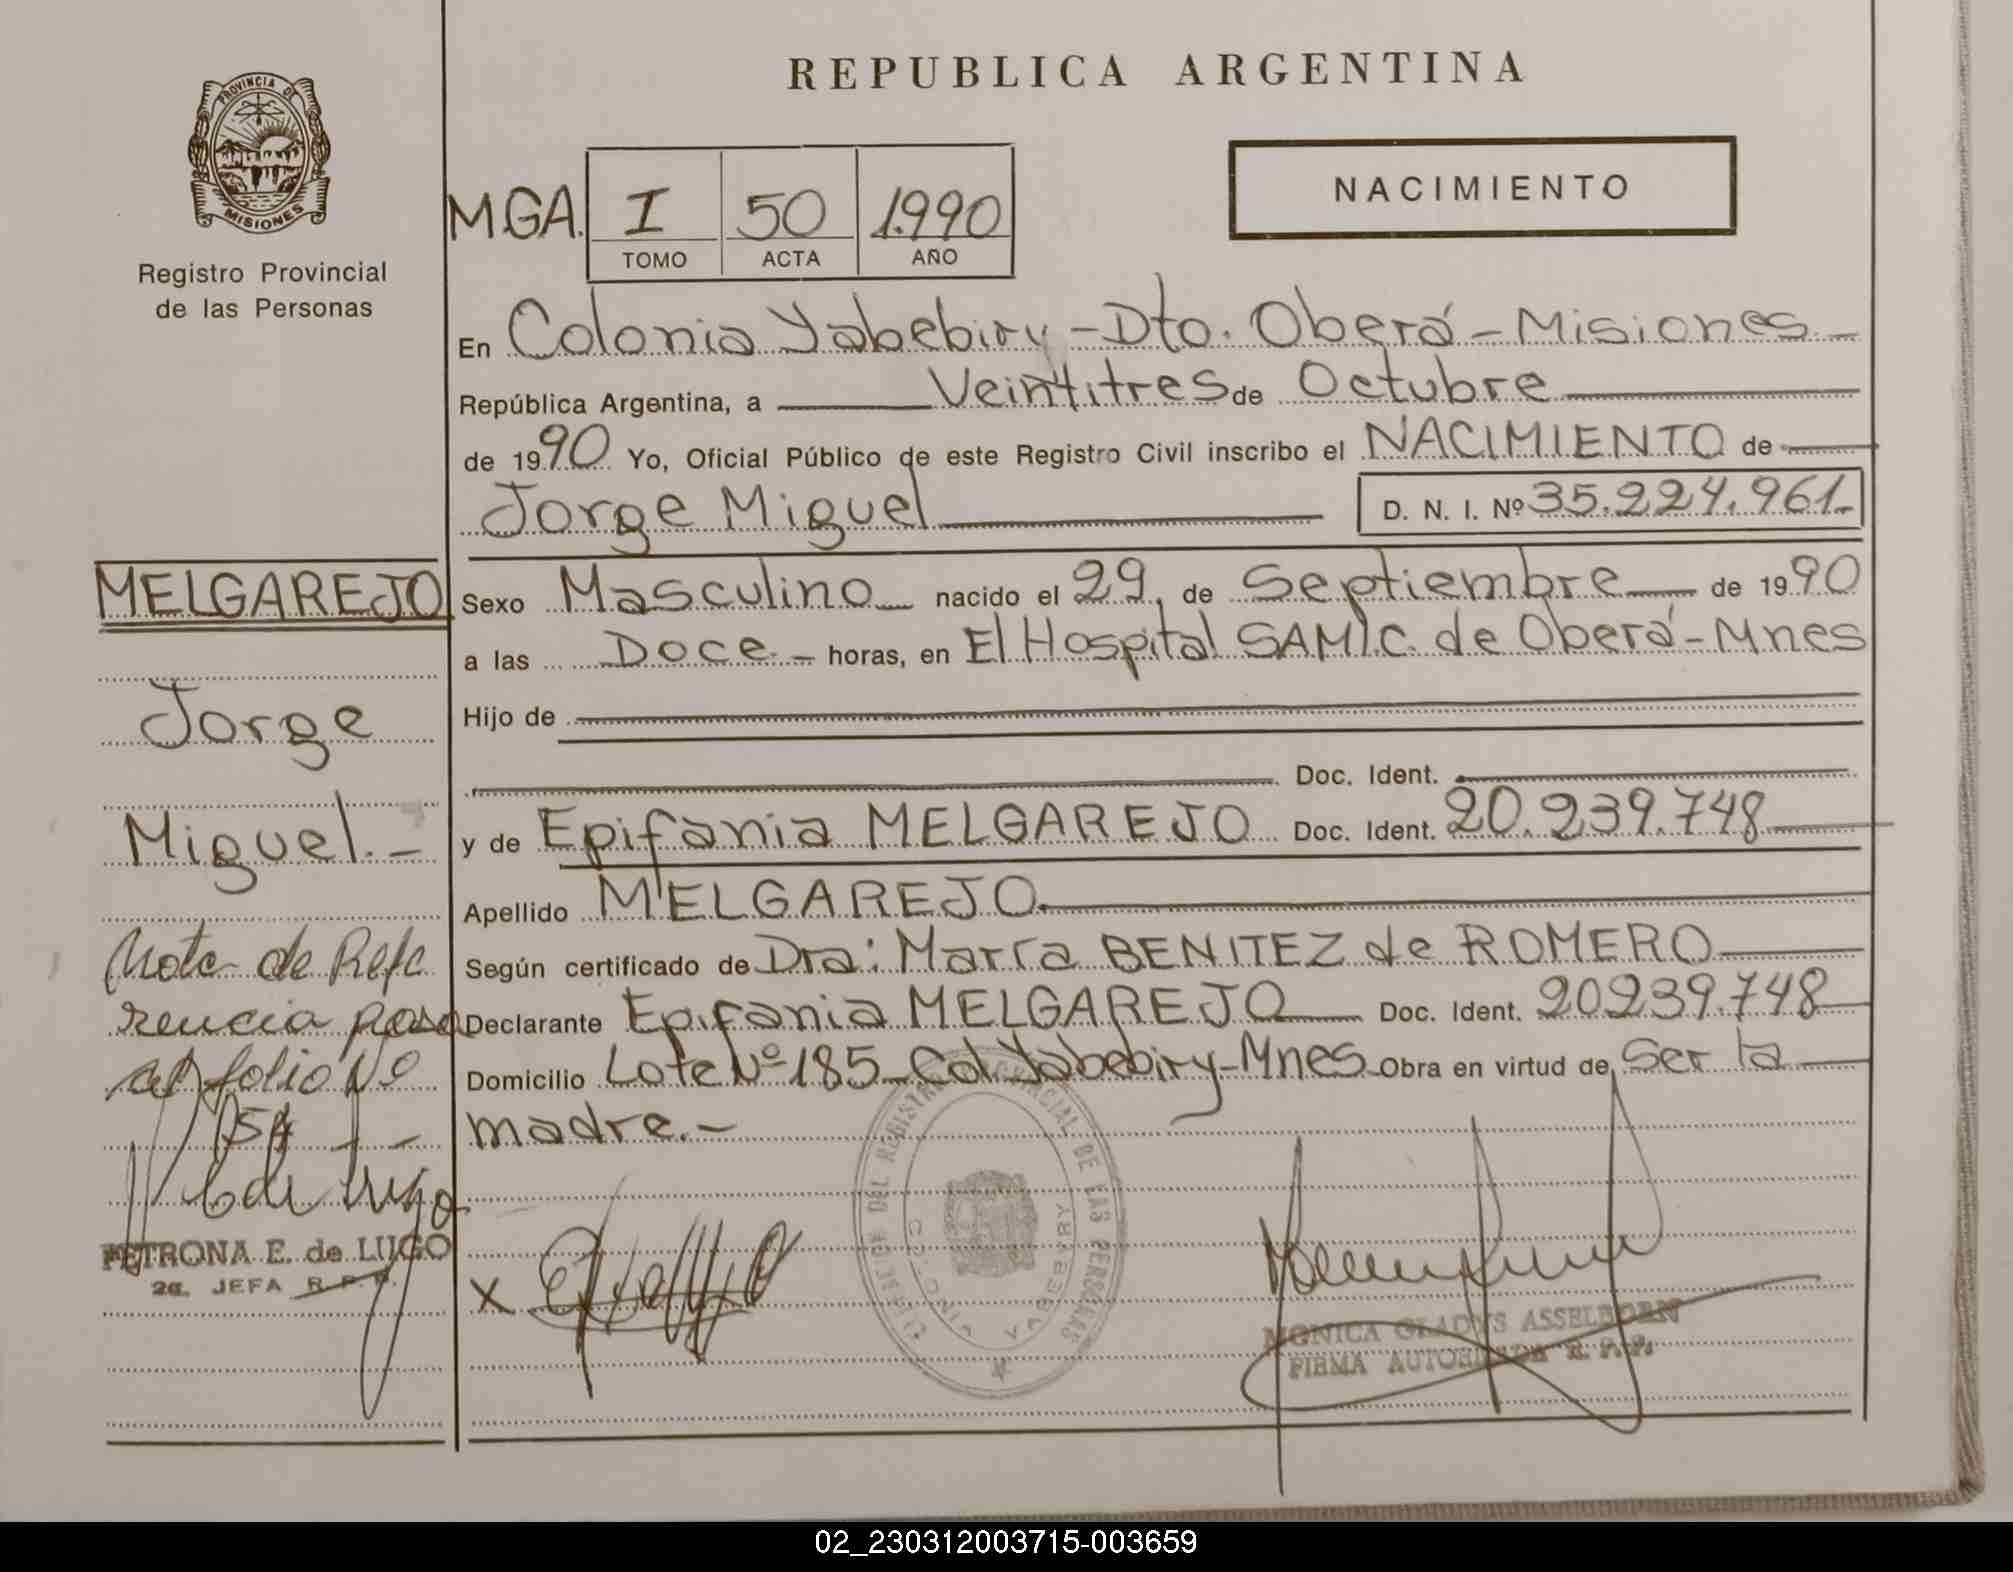 REPUBLICA ARGENTINA
PROVINCIA DE
MISIONES
Registro Provincial
de las Personas
NACIMIENTO
MGA. I 50 1.990
TOMO ACTA AÑO
En Colonia Yabebiry - Dto. Oberá - Misiones
República Argentina, a Veintitres de Octubre
de 1990 Yo, Oficial Público de este Registro Civil inscribo el NACIMIENTO de
Jorge Miguel D. N. I. Nº 35.224.961.-
MELGAREJO
Jorge
Miguel.-
Sexo Masculino nacido el 29 de Septiembre de 1990
a las Doce - horas, en El Hospital SAMIC. de Oberá - Mnes
Hijo de
Doc. Ident.
y de Epifania MELGAREJO Doc. Ident. 20.239.748
Apellido MELGAREJO
Según certificado de Dra: Marta BENITEZ de ROMERO
Declarante Epifania MELGAREJO Doc. Ident. 20239.748
Domicilio Lote Nº 185 - Col Yabebiry - Mnes Obra en virtud de Ser la
madre.-
Nota de Refe
rencia pasa
al folio Nº
PETRONA E. de LUGO
2a. JEFA R. P. P.
DEL REGISTRO PROVINCIAL DE LAS PERSONAS
COLONIA YABEBIRY
X
MONICA GLADYS ASSELBORN
FIRMA AUTORIZADA R. P. P.
02_230312003715-003659